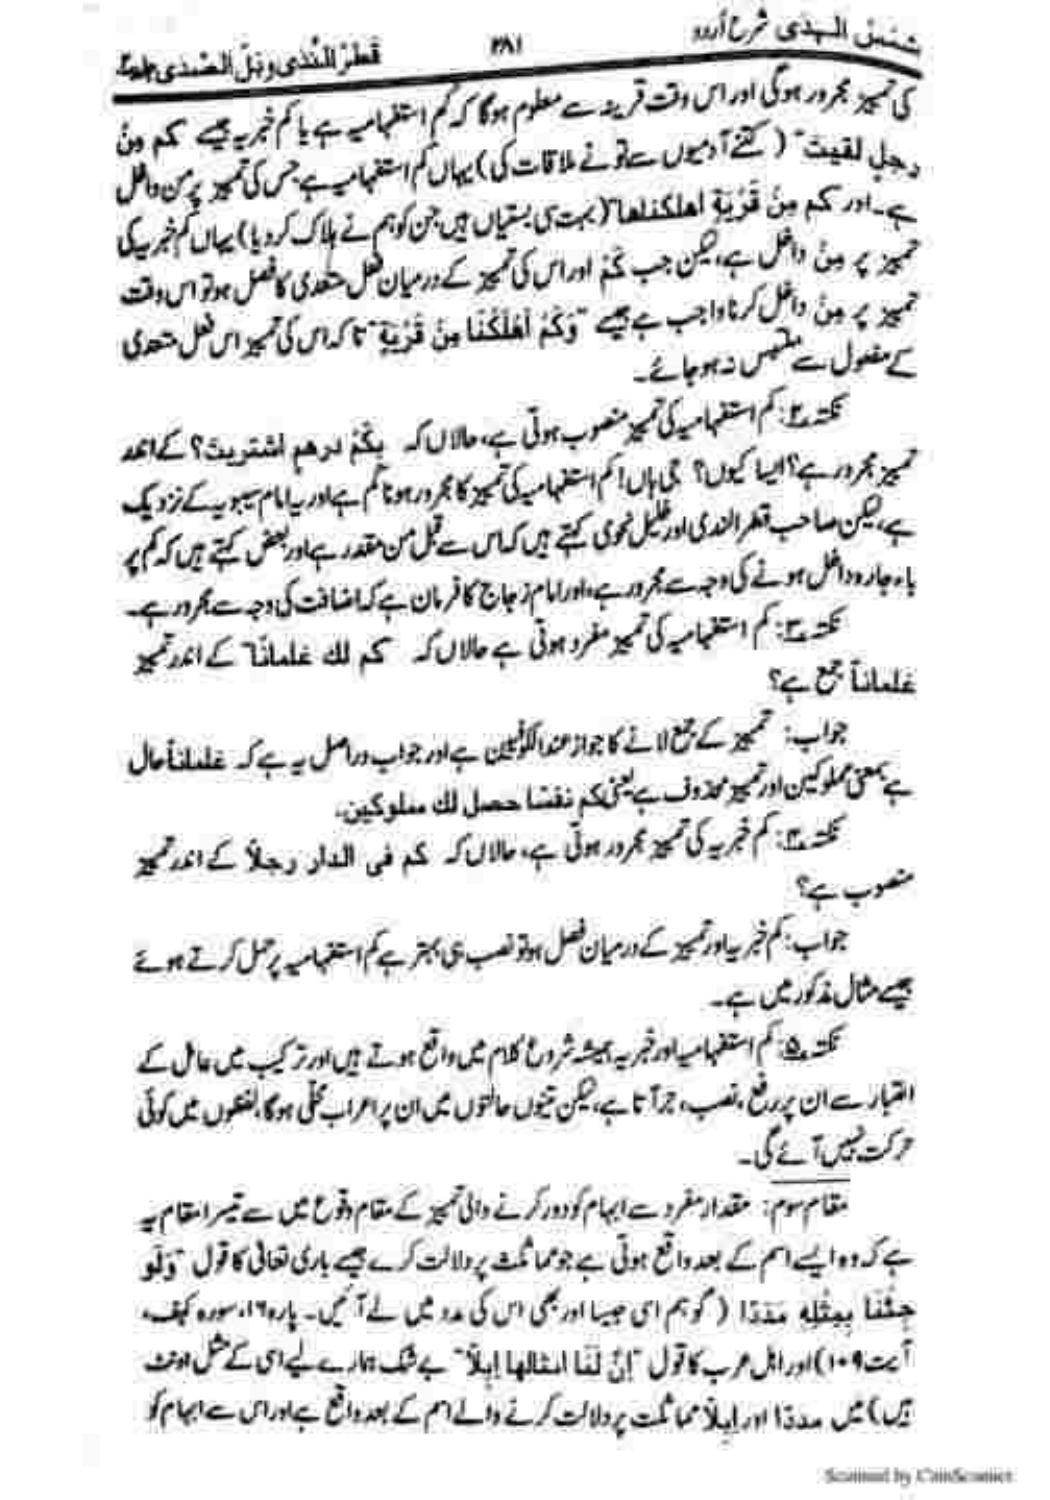 شمس الہدی شرح اُردو ۳۸۱ قَطرُ النَّدٰی وَبَلُّ الصَّدٰی
کی تمییز مجرور ہوگی اور اس وقت قرینہ سے معلوم ہوگا کہ کم استفہامیہ ہے یا کم خبریہ جیسے کم مِنْ
رجلٍ لقیتَ" (کتنے آدمیوں سے تو نے ملاقات کی) یہاں کم استفہامیہ ہے جس کی تمییز پر من داخل
ہے۔ اور کم مِنْ قَرْیَةٍ اھلکناھا" (بہت سی بستیاں ہیں جن کو ہم نے ہلاک کردیا) یہاں کم خبریہ کی
تمییز پر مِنْ داخل ہے، لیکن جب کَمْ اور اس کی تمییز کے درمیان فعل متعدی کا فصل ہو تو اس وقت
تمییز پر مِنْ داخل کرنا واجب ہے جیسے "وَکَمْ اَھْلَکْنَا مِنْ قَرْیَةٍ" تا کہ اس کی تمییز اس فعل متعدی
کے مفعول سے ملتبس نہ ہوجائے۔
نکتہ ۲: کم استفہامیہ کی تمییز منصوب ہوتی ہے، حالاں کہ بِکَمْ درھمٍ اشتریتَ؟ کے اندر
تمییز مجرور ہے؟ ایسا کیوں؟ جی ہاں! کم استفہامیہ کی تمییز کا مجرور ہونا کم ہے اور یہ امام سیبویہ کے نزدیک
ہے، لیکن صاحب قطر الندی اور خلیل نحوی کہتے ہیں کہ اس سے قبل من مقدر ہے اور بعض کہتے ہیں کہ کم پر
باء جارہ داخل ہونے کی وجہ سے مجرور ہے، اور امام زجاج کا فرمان ہے کہ اضافت کی وجہ سے مجرور ہے۔
نکتہ ۳: کم استفہامیہ کی تمییز مفرد ہوتی ہے حالاں کہ کم لك غلمانًا" کے اندر تمییز
غلماناً جمع ہے؟
جواب: تمییز کے جمع لانے کا جواز عند الکوفیین ہے اور جواب دراصل یہ ہے کہ غلماناً حال
ہے بمعنی مملوکین اور تمییز محذوف ہے یعنی کم نفسًا حصل لك مملوکین۔
نکتہ ۴: کم خبریہ کی تمییز مجرور ہوتی ہے، حالاں کہ کم فی الدار رجلاً کے اندر تمییز
منصوب ہے؟
جواب: کم خبریہ اور تمییز کے درمیان فصل ہو تو نصب ہی بہتر ہے کم استفہامیہ پر حمل کرتے ہوئے
جیسے مثال مذکور میں ہے۔
نکتہ ۵: کم استفہامیہ اور خبریہ ہمیشہ شروع کلام میں واقع ہوتے ہیں اور ترکیب میں عامل کے
اعتبار سے ان پر رفع، نصب، جر آتا ہے، لیکن تینوں حالتوں میں ان پر اعراب محلّی ہوگا، لفظوں میں کوئی
حرکت نہیں آئے گی۔
مقام سوم: مقدار مفرد سے ابہام کو دور کرنے والی تمییز کے مقام وقوع میں سے تیسرا مقام یہ
ہے کہ وہ ایسے اسم کے بعد واقع ہوتی ہے جو مماثلت پر دلالت کرے جیسے باری تعالیٰ کا قول "وَلَو
جِئْنَا بِمِثْلِهٖ مَدَدًا (گو ہم اسی جیسا اور بھی اس کی مدد میں لے آئیں۔ پارہ ۱۶، سورہ کہف،
آیت ۱۰۹) اور اہل عرب کا قول "اِنَّ لَنَا امثالھا اِبِلاً" بے شک ہمارے لیے اسی کے مثل اونٹ
ہیں) میں مددًا اور اِبِلاً مماثلت پر دلالت کرنے والے اسم کے بعد واقع ہے اور اس سے ابہام کو
Scanned by CamScanner